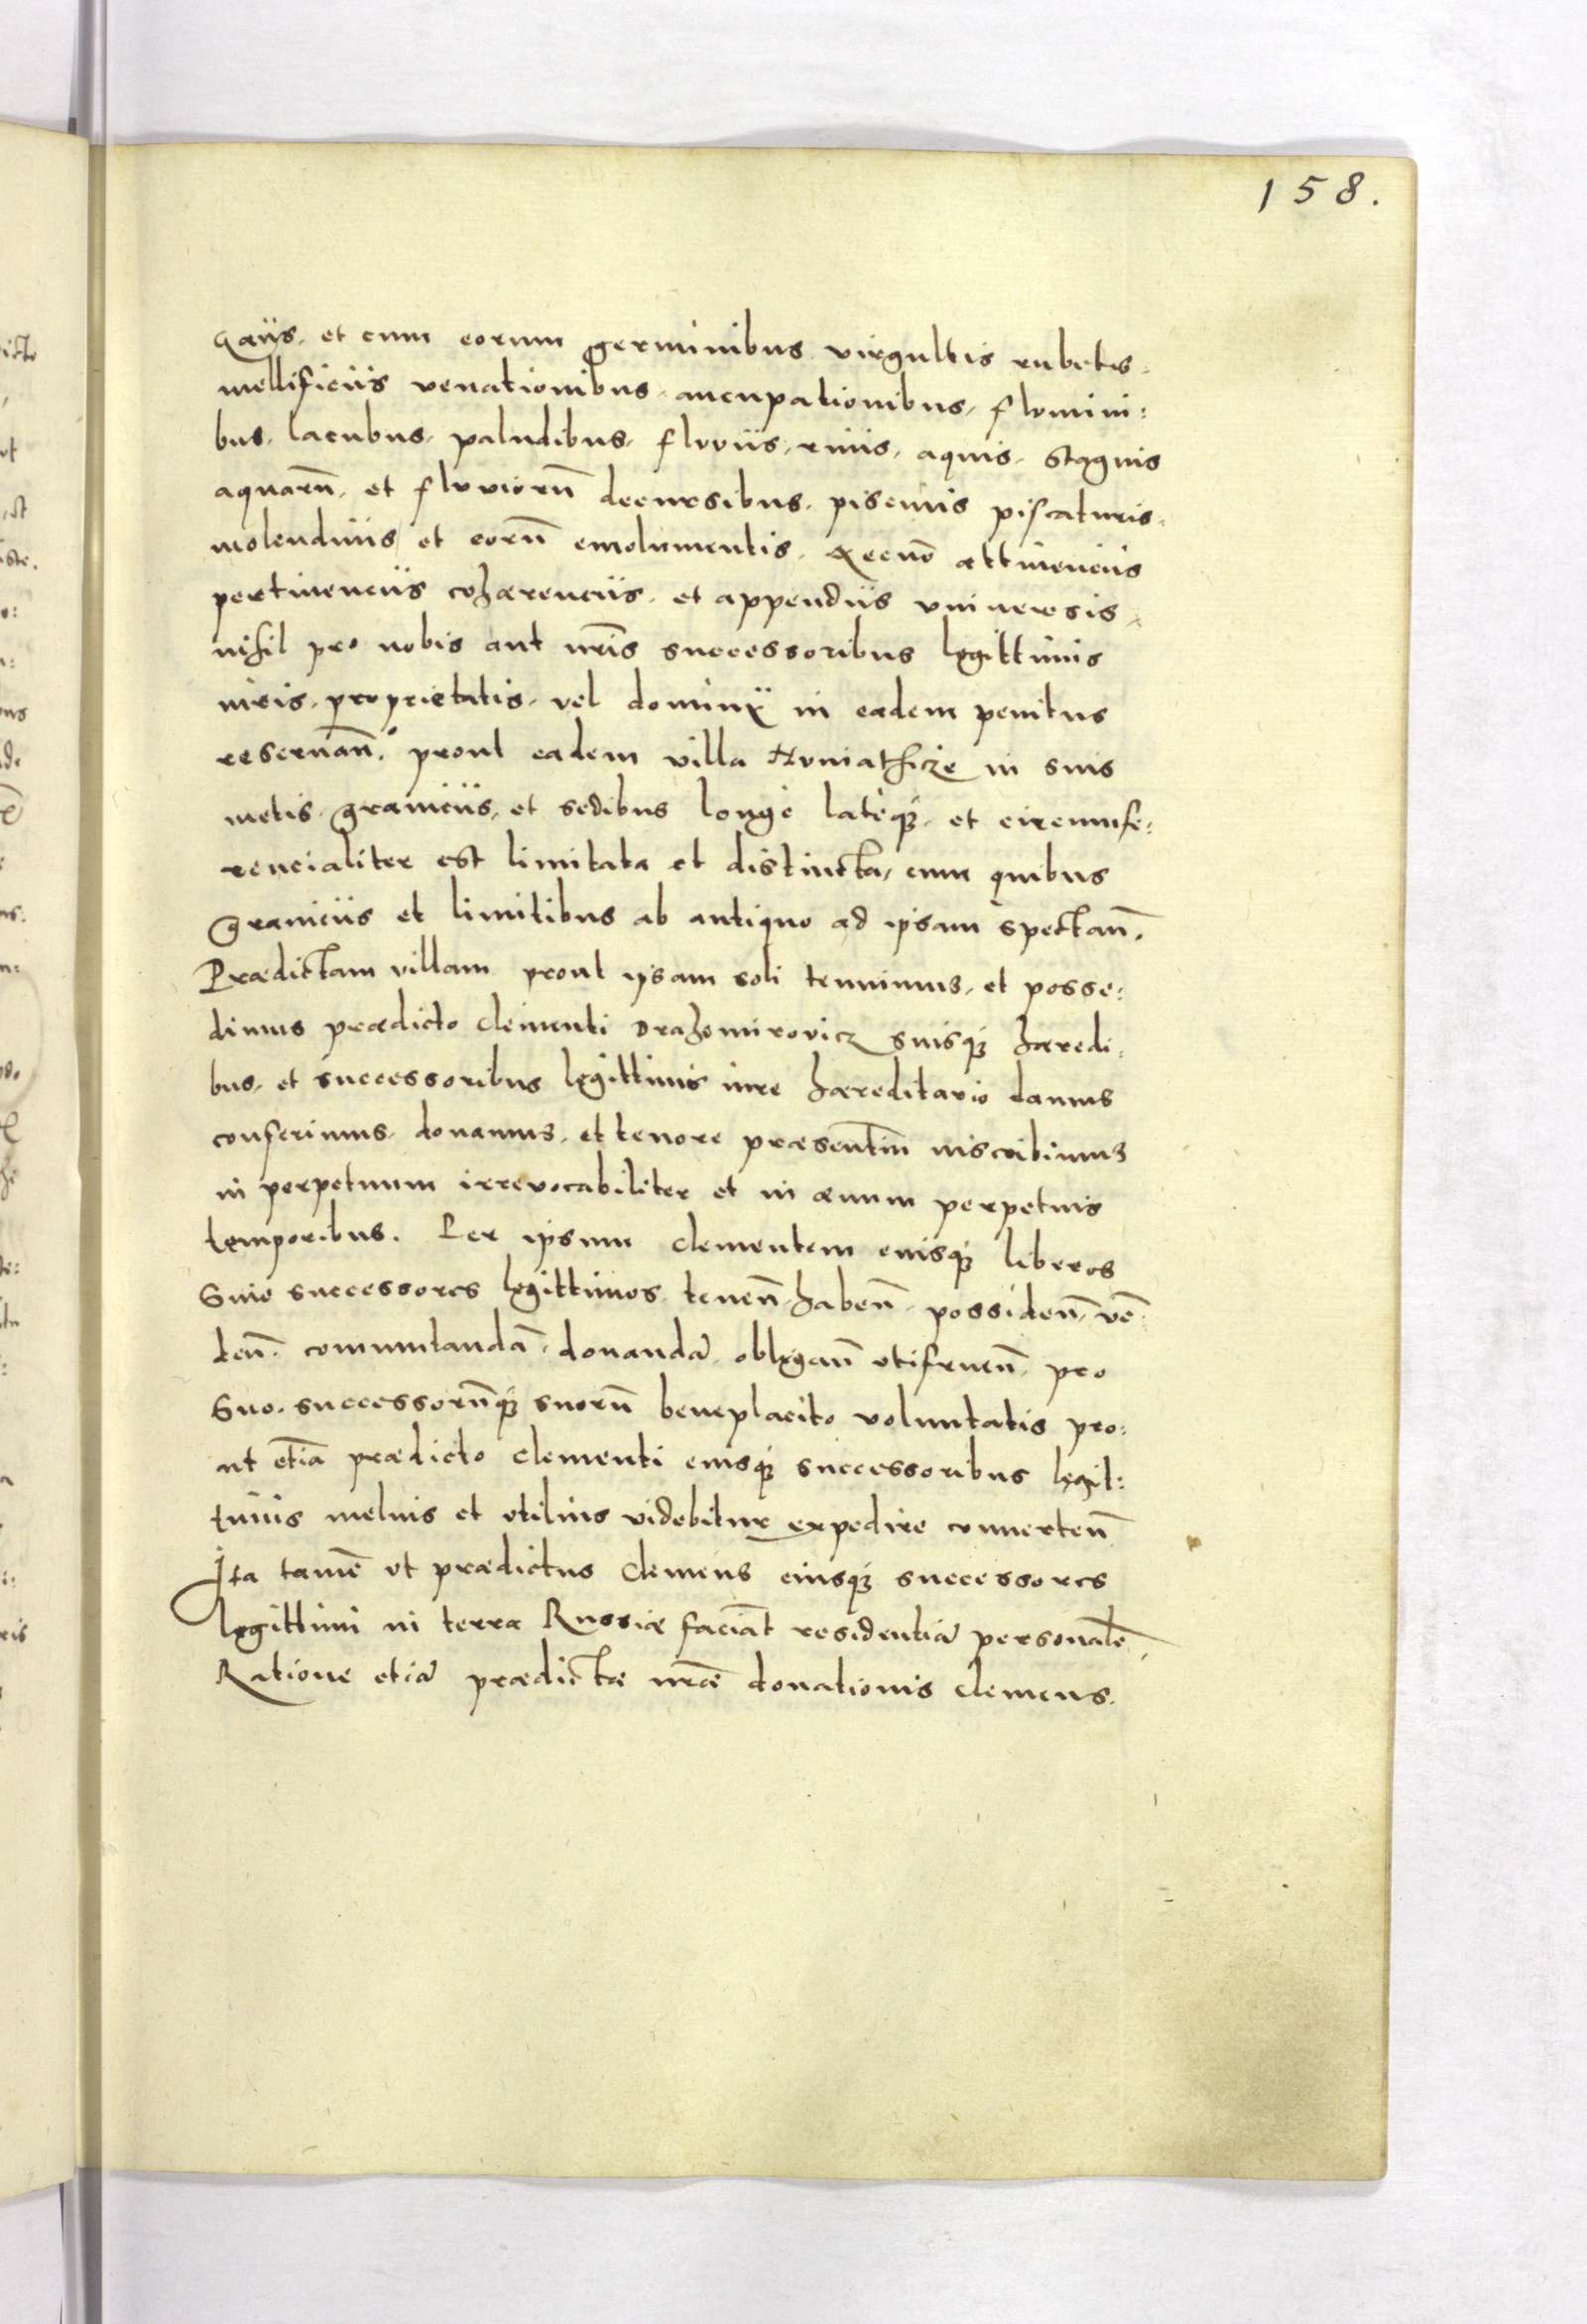 158.
gaijs. et cum eorum germinibus virgultis rubetis.
mellificiis venationibus. aucupationibus, flumini:
bus, lacubus, paludibus, fluuiis, riuis, aquis, stagnis
aquarū, et fluuiorū decursibus. piscinis piscaturis.
molendinis et eorū emolumentis. ac cum attinenciis
pertinenciis cohærenciis. et appendiis vniuersis.
nihil pro nobis aut nr̄is successoribus legittimis
iuris, proprietatis, vel dominij in eadem penitus
reseruan̄. prout eadem villa Huniathicze in suis
metis, graniciis, et sedibus longè latèq; et circumfe:
rencialiter est limitata et distincta, cum quibus
graniciis et limitibus ab antiquo ad ipsam spectan̄.
Prædictam villam prout ipsam soli tenuimus, et posse:
dimus prædicto clementi Drahomirovicz suisq; hæredi:
bus, et successoribus legittimis iure hæreditario damus
conferimus, donamus, et tenore præsentiū inscribimus
in perpetuum irrevocabiliter et in æuum perpetuis
temporibus. Per ipsum clementem eiusq; liberos
siue successores legittimos, tenen̄. haben̄. possiden̄, vē
den̄. commutandā, donandā, obligan̄ vtifruen̄, pro
suo. successorūq; suorū beneplacito voluntatis pro:
ut etiā prædicto clementi eiusq; successoribus legit:
timis melius et vtilius videbitur expedire conuerten̄
Ita tamē vt prædictus clemens eiusq; successores
legittimi in terra Russiæ faciāt residentiā personalē,
Ratione etiā prædictæ nr̄æ donationis clemens.